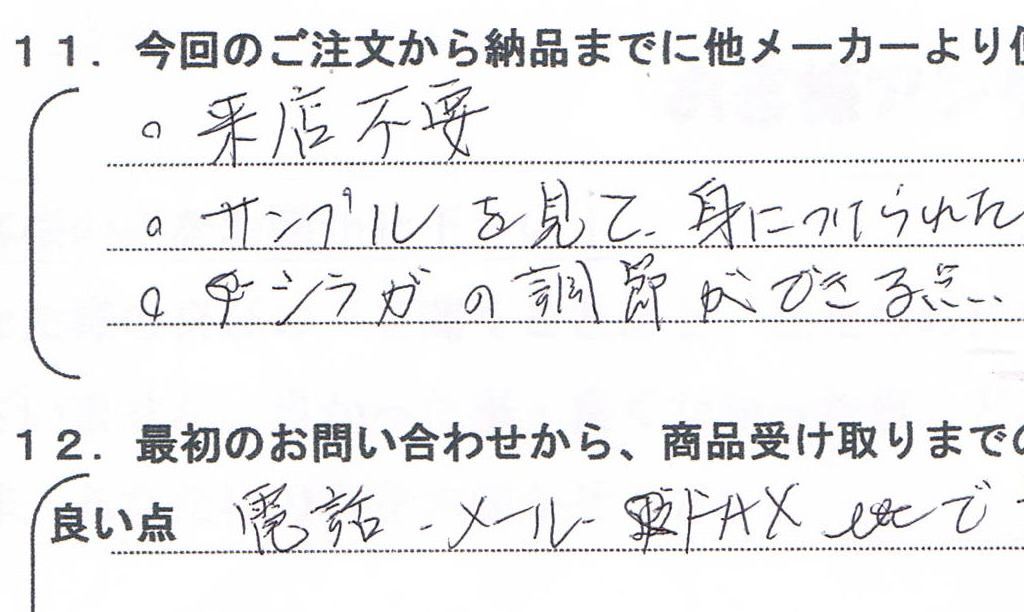 11. 今回のご注文から納品までに他メーカーより
。来店不要
。サンプルを見て、身につけられた
。シラガの調節ができる点.
12. 最初のお問い合わせから、商品受け取りまでの
良い点 電話・メール・FAX etcで